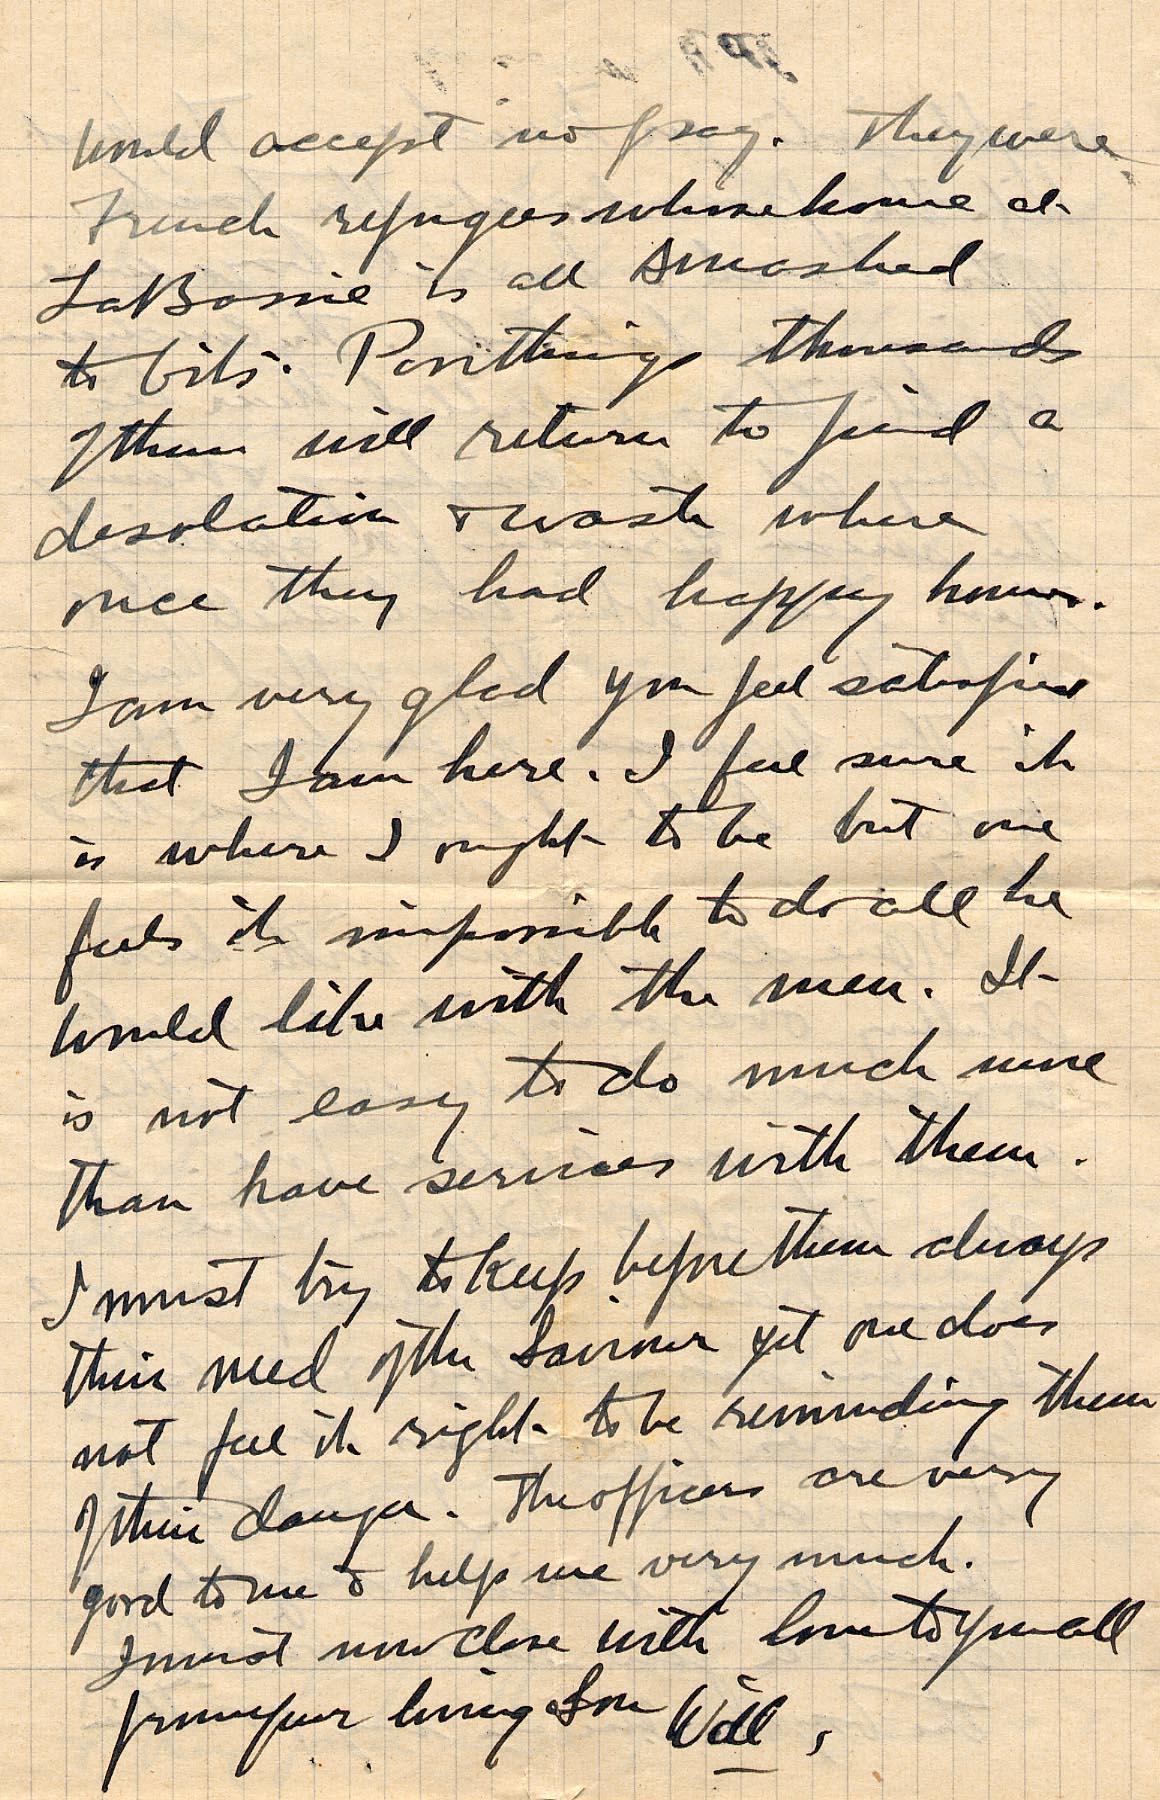 would accept no pay. They were
French refugees whose home at
LaBassie is all smashed
to bits. Poor things thousands
of them will return to find a
desolation & waste where
once they had happy homes.
I am very glad you feel satisfied
that I am here. I feel sure it
is where I ought to be but one
feels it impossible to do all he
would like with the men. It
is not easy to do much more
than have services with them.
I must try to keep before them always
their need of the Saviour yet one does
not feel it right to be reminding them
of their danger. The officers are very
good to me & help me very much.
I must now close with love to you all
from your loving Son Will,